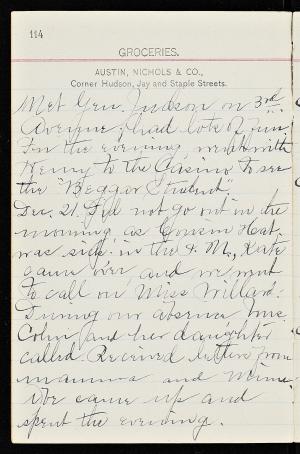 114
GROCERIES.
AUSTIN, NICHOLS & CO.,
Corner Hudson, Jay and Staple Streets.
Met Gen. Judson on 3rd
Avenue; had lots of fun.
In the evening went with
Henry to the Casino to see
the "Beggar Student".
Dec. 21. Did not go out in the
morning as Cousin Hat.
was sick. in the P. M., Kate
came over and we went
to call on Miss Willard.
During our absence Mrs
Colby and her daughter
called. Received letters from
mamma and Minnie.
We came up and
spent the evening.